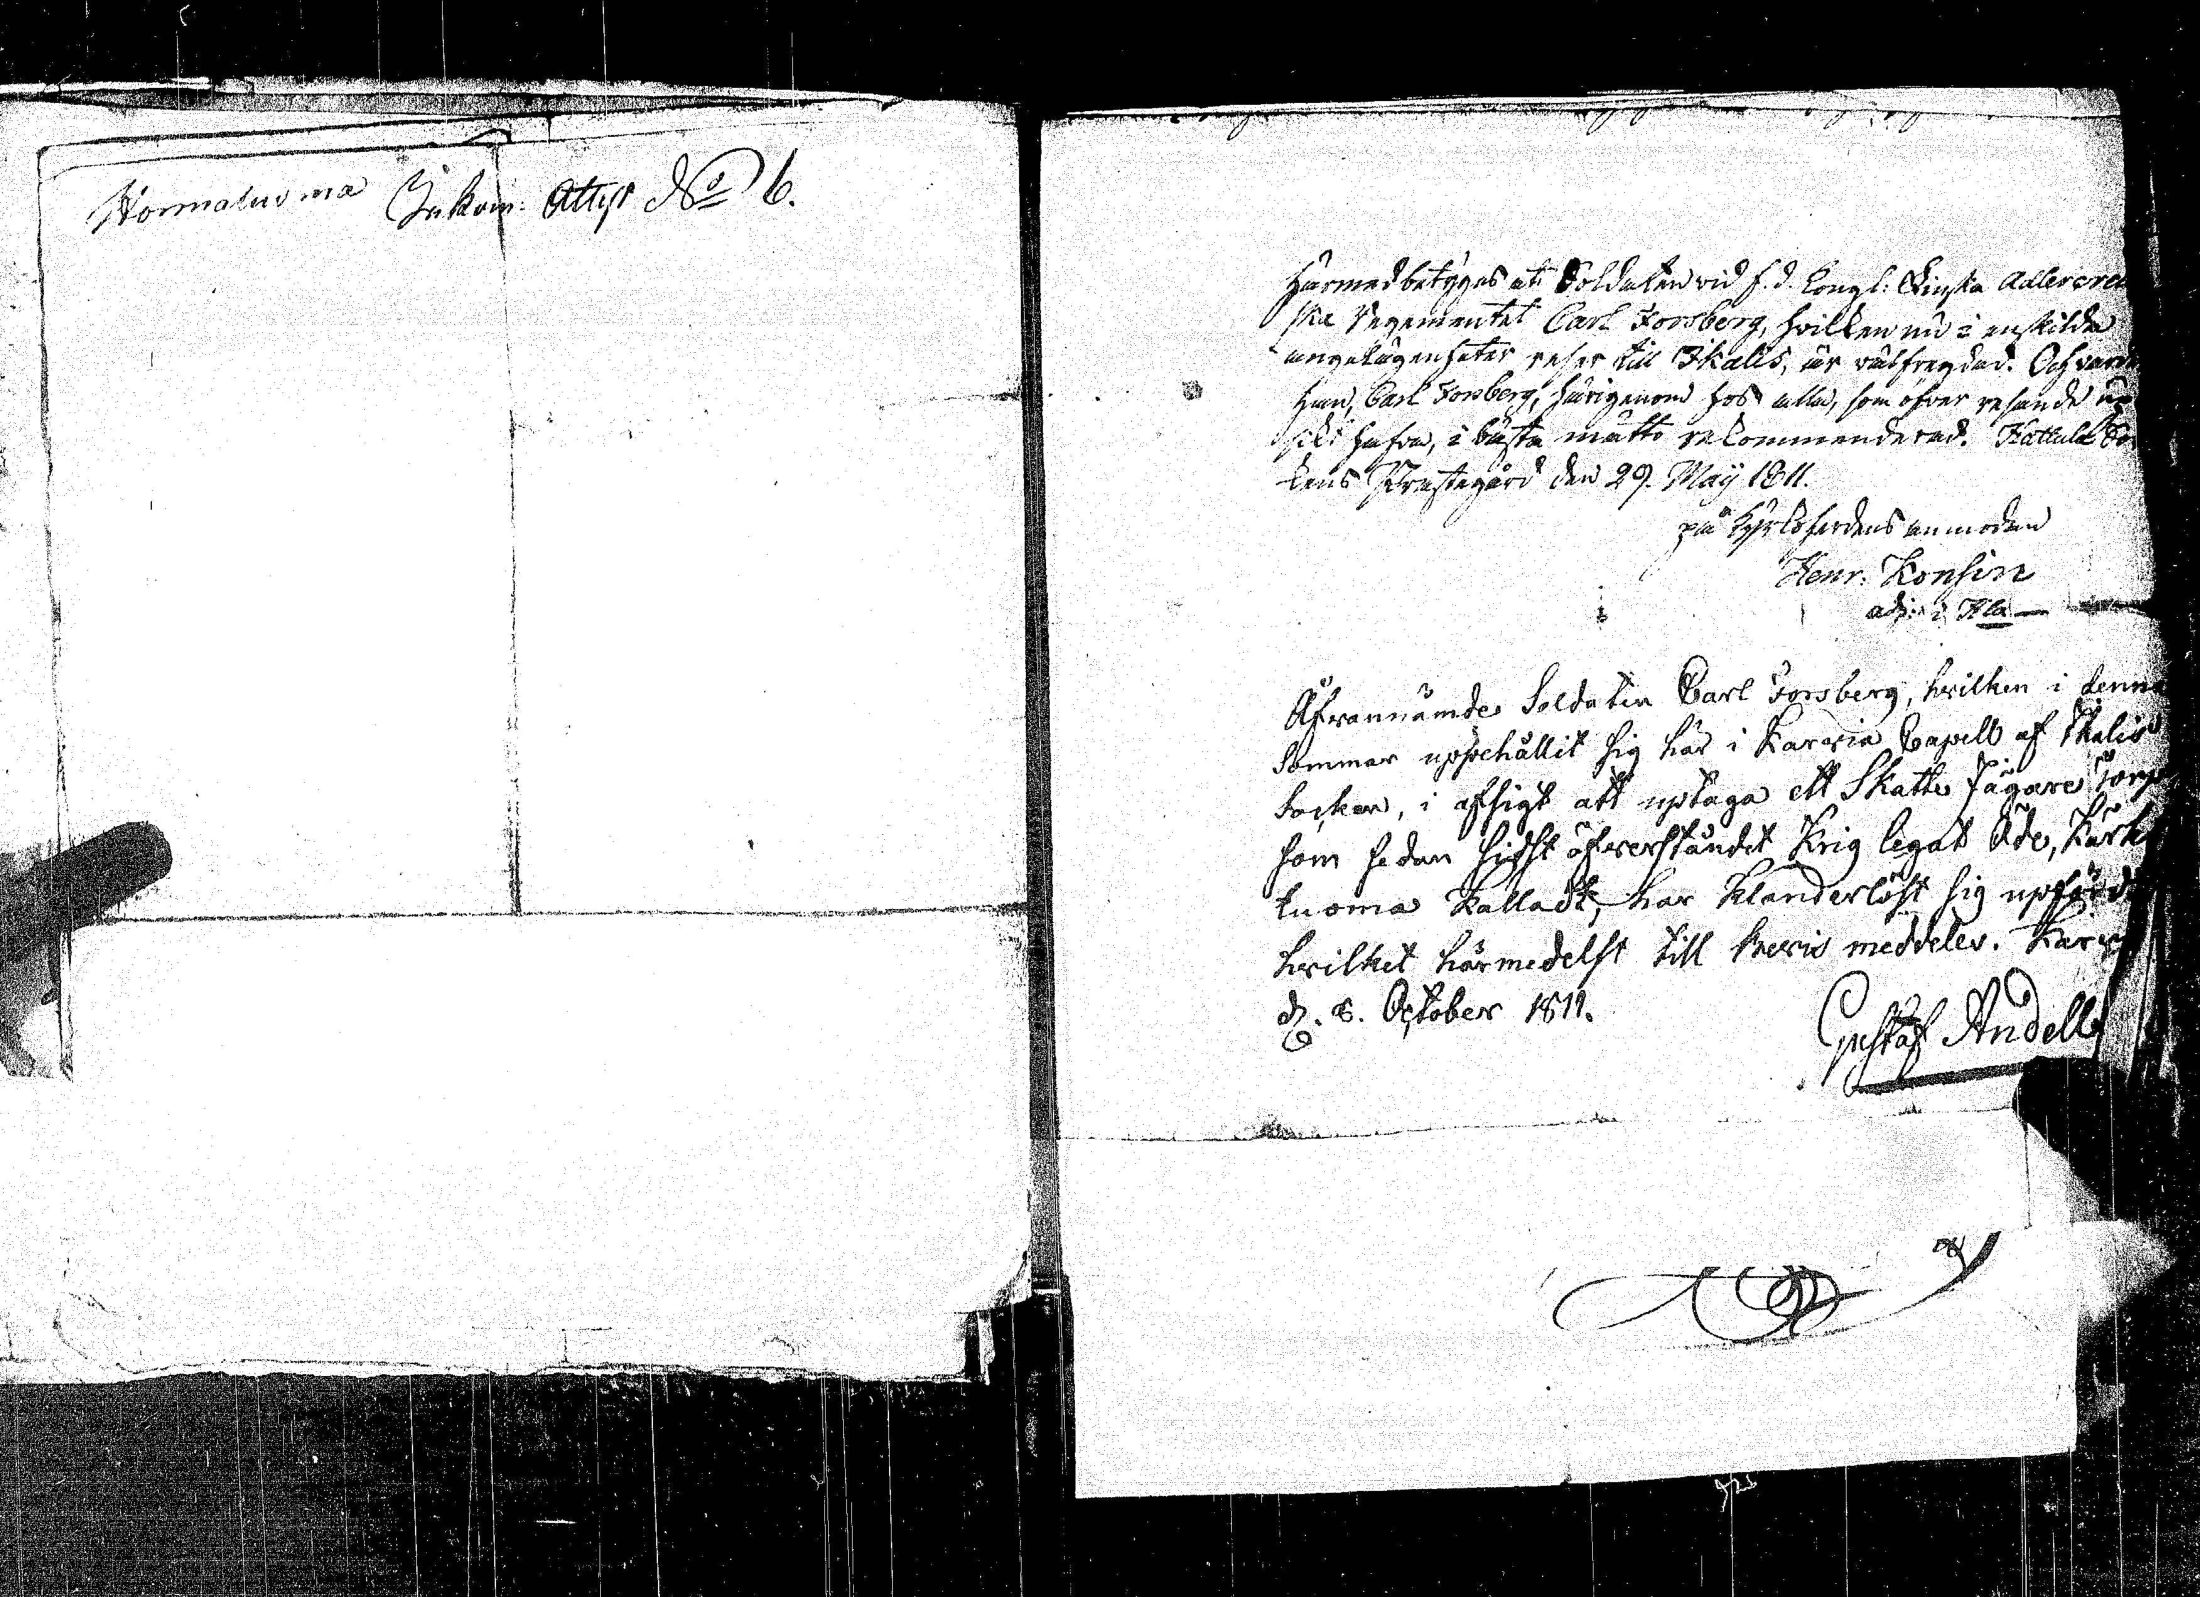 Inkom: Attest No 6.
Härmed betyges att Soldaten vid f. d. Kongl: Finska Adlercreu
ska Regementet Carl Forsberg, hvilken nu i enskilda
angelägenheter reser till Ikalis, är välfregdad. Och varde
han, Carl Forsberg, härigenom hos alla, som öfver resande up
sikt hafva, i bästa måtto rekommenderad. Hattula So
kens Prestegård den 29. Maÿ 1811.
på Kyrkoherdens anmodan
Henr. Konsin
adj: i Hla
Åfvannämde Soldaten Carl Forsberg, hvilken i denna
Sommar uppehållit sig här i Karvia Capell af Ikalis
Socken, i afsigt att uptaga ett Skatte Jägare Torp
som sedan sidst öfverståndet Krig legat öde, Kark
tuoma Kalladt, har klanderlöst sig upfördt
hvilket härmedelst till bevis meddeles. Karvia
d. 8. October 1811.
Gustaf Andell
925